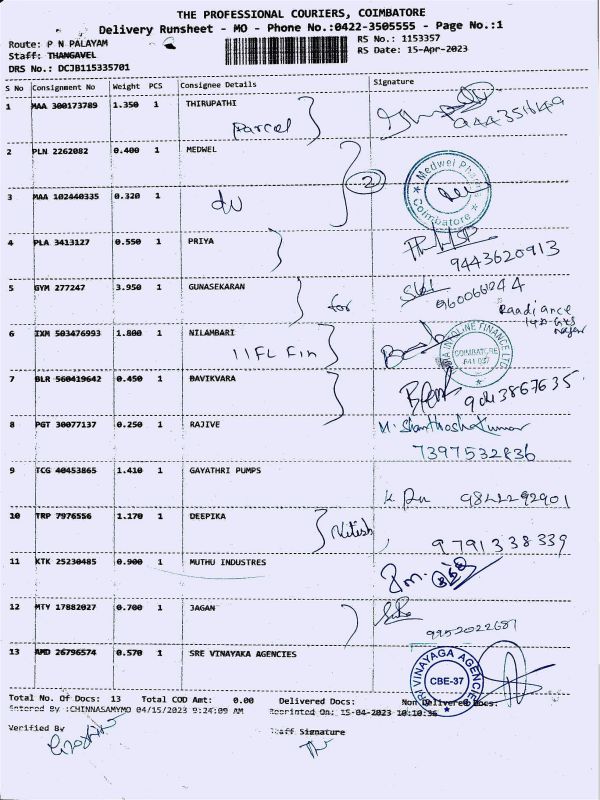 THE PROFESSIONAL COURIERS, COIMBATORE
Delivery Runsheet - MO - Phone No.:0422-3505555 - Page No.:1
Route: P N PALAYAM RS No.: 1153357
Staff: THANGAVEL RS Date: 15-Apr-2023
DRS No.: DCJB115335701
S No Consignment No Weight PCS Consignee Details Signature
1 MAA 300173789 1.350 1 THIRUPATHI
Parcel
2 PLN 2262082 0.400 1 MEDWEL
2
Medwel Pharma
Coimbatore
3 MAA 102440335 0.320 1
4 PLA 3413127 0.550 1 PRIYA
9443620913
5 GYM 277247 3.950 1 GUNASEKARAN
for
Raadiance
6 IXM 503476993 1.800 1 NILAMBARI
IIFL Fin
COIMBATORE
641 037
7 BLR 560419642 0.450 1 BAVIKVARA
8 PGT 30077137 0.250 1 RAJIVE
M. Shanthosh Kumar
7397532836
9 TCG 40453865 1.410 1 GAYATHRI PUMPS
10 TRP 7976556 1.170 1 DEEPIKA
Nitish
9791338339
11 KTK 25230485 0.900 1 MUTHU INDUSTRES
12 MTY 17882027 0.700 1 JAGAN
9952022687
13 AMD 26796574 0.570 1 SRE VINAYAKA AGENCIES
SRI VINAYAGA AGENCIES
CBE-37
Total No. Of Docs: 13 Total COD Amt: 0.00 Delivered Docs: Non Delivered Docs:
Entered By :CHINNASAMYMO 04/15/2023 9:24:09 AM Reprinted On: 15-04-2023 10:10:36
Verified By Staff Signature